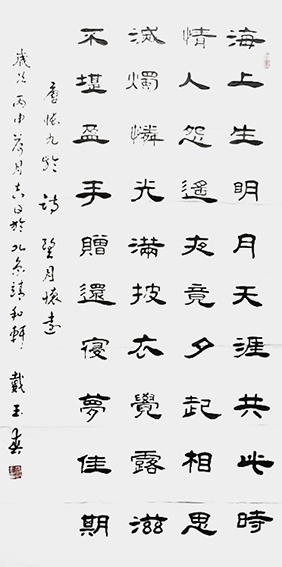 海上生明月天涯共此時
情人怨遙夜竟夕起相思
滅燭憐光滿披衣覺露滋
不堪盈手贈還寢夢佳期
唐張九齡詩望月懷遠
歲次丙申月吉日於北京靖和軒 戴玉